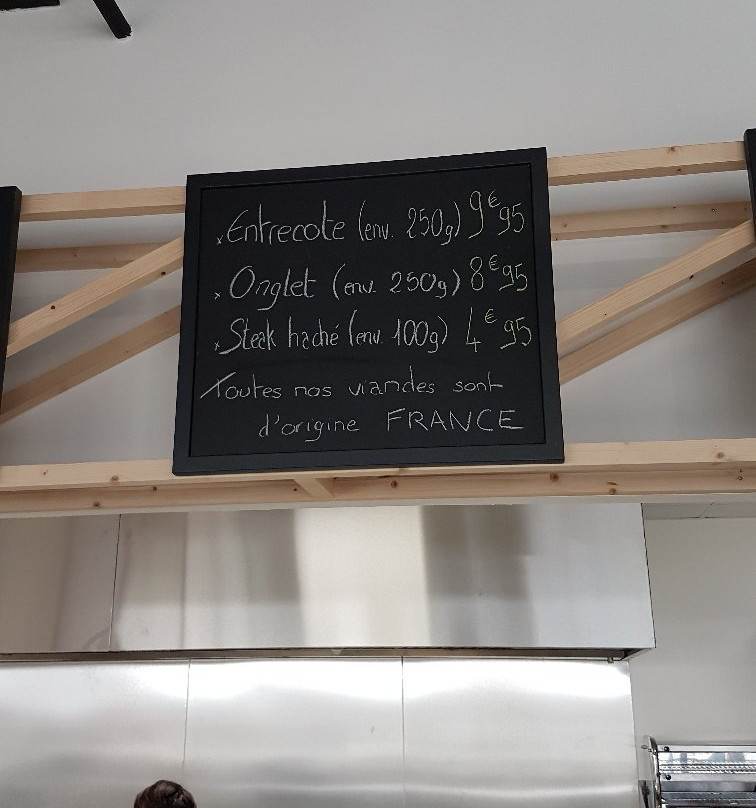 x Entrecote (env. 250g) 9€95
x Onglet (env. 250g) 8€95
x Steak haché (env. 100g) 4€95
Toutes nos viandes sont
d'origine FRANCE